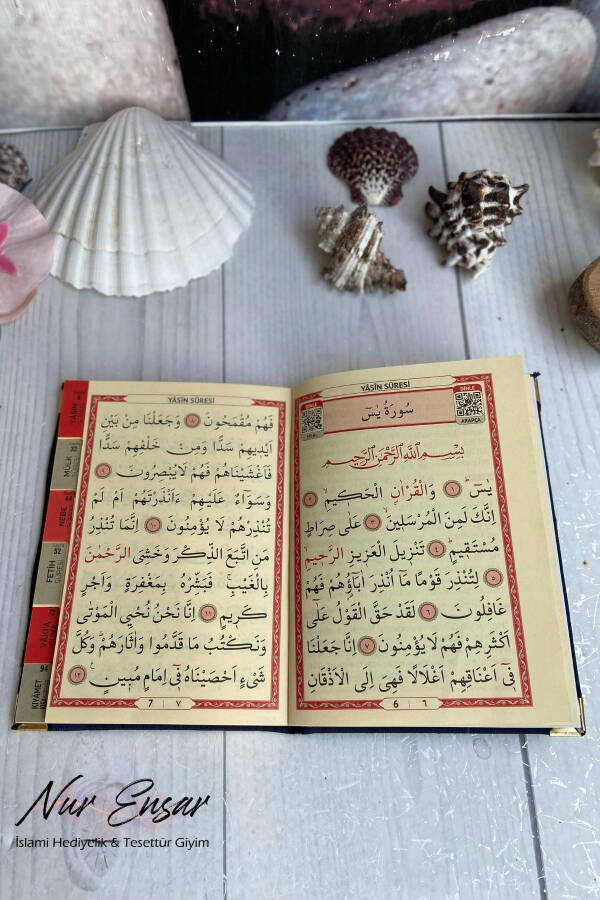 YÂSÎN SÛRESİ
DİNLE
سُورَةُ يٰسٓ
ARAPÇA
بِسْمِ اللّٰهِ الرَّحْمٰنِ الرَّحٖيمِ
يٰسٓ ﴿١﴾ وَالْقُرْاٰنِ الْحَكٖيمِ ﴿٢﴾
اِنَّكَ لَمِنَ الْمُرْسَلٖينَ ﴿٣﴾ عَلٰى صِرَاطٍ
مُسْتَقٖيمٍ ﴿٤﴾ تَنْزٖيلَ الْعَزٖيزِ الرَّحٖيمِ
﴿٥﴾ لِتُنْذِرَ قَوْمًا مَٓا اُنْذِرَ اٰبَٓاؤُ۬هُمْ فَهُمْ
غَافِلُونَ ﴿٦﴾ لَقَدْ حَقَّ الْقَوْلُ عَلٰٓى
اَكْثَرِهِمْ فَهُمْ لَا يُؤْمِنُونَ ﴿٧﴾ اِنَّا جَعَلْنَا
فٖٓى اَعْنَاقِهِمْ اَغْلَالًا فَهِىَ اِلَى الْاَذْقَانِ
6 ٦
YÂSÎN SÛRESİ
فَهُمْ مُقْمَحُونَ ﴿٨﴾ وَجَعَلْنَا مِنْ بَيْنِ
اَيْدٖيهِمْ سَدًّا وَمِنْ خَلْفِهِمْ سَدًّا
فَاَغْشَيْنَاهُمْ فَهُمْ لَا يُبْصِرُونَ ﴿٩﴾
وَسَوَٓاءٌ عَلَيْهِمْ ءَاَنْذَرْتَهُمْ اَمْ لَمْ
تُنْذِرْهُمْ لَا يُؤْمِنُونَ ﴿١٠﴾ اِنَّمَا تُنْذِرُ
مَنِ اتَّبَعَ الذِّكْرَ وَخَشِىَ الرَّحْمٰنَ
بِالْغَيْبِۚ فَبَشِّرْهُ بِمَغْفِرَةٍ وَاَجْرٍ
كَرٖيمٍ ﴿١١﴾ اِنَّا نَحْنُ نُحْيِ الْمَوْتٰى
وَنَكْتُبُ مَا قَدَّمُوا وَاٰثَارَهُمْؕ وَكُلَّ
شَىْءٍ اَحْصَيْنَاهُ فٖٓى اِمَامٍ مُبٖينٍ ﴿١٢﴾
7 ٧
YÂSİN
MÜLK
NEBE
52
FETİH
SÛRESİ
VÂKIA
94
KIYÂMET
Nur Ensar
İslami Hediyelik & Tesettür Giyim